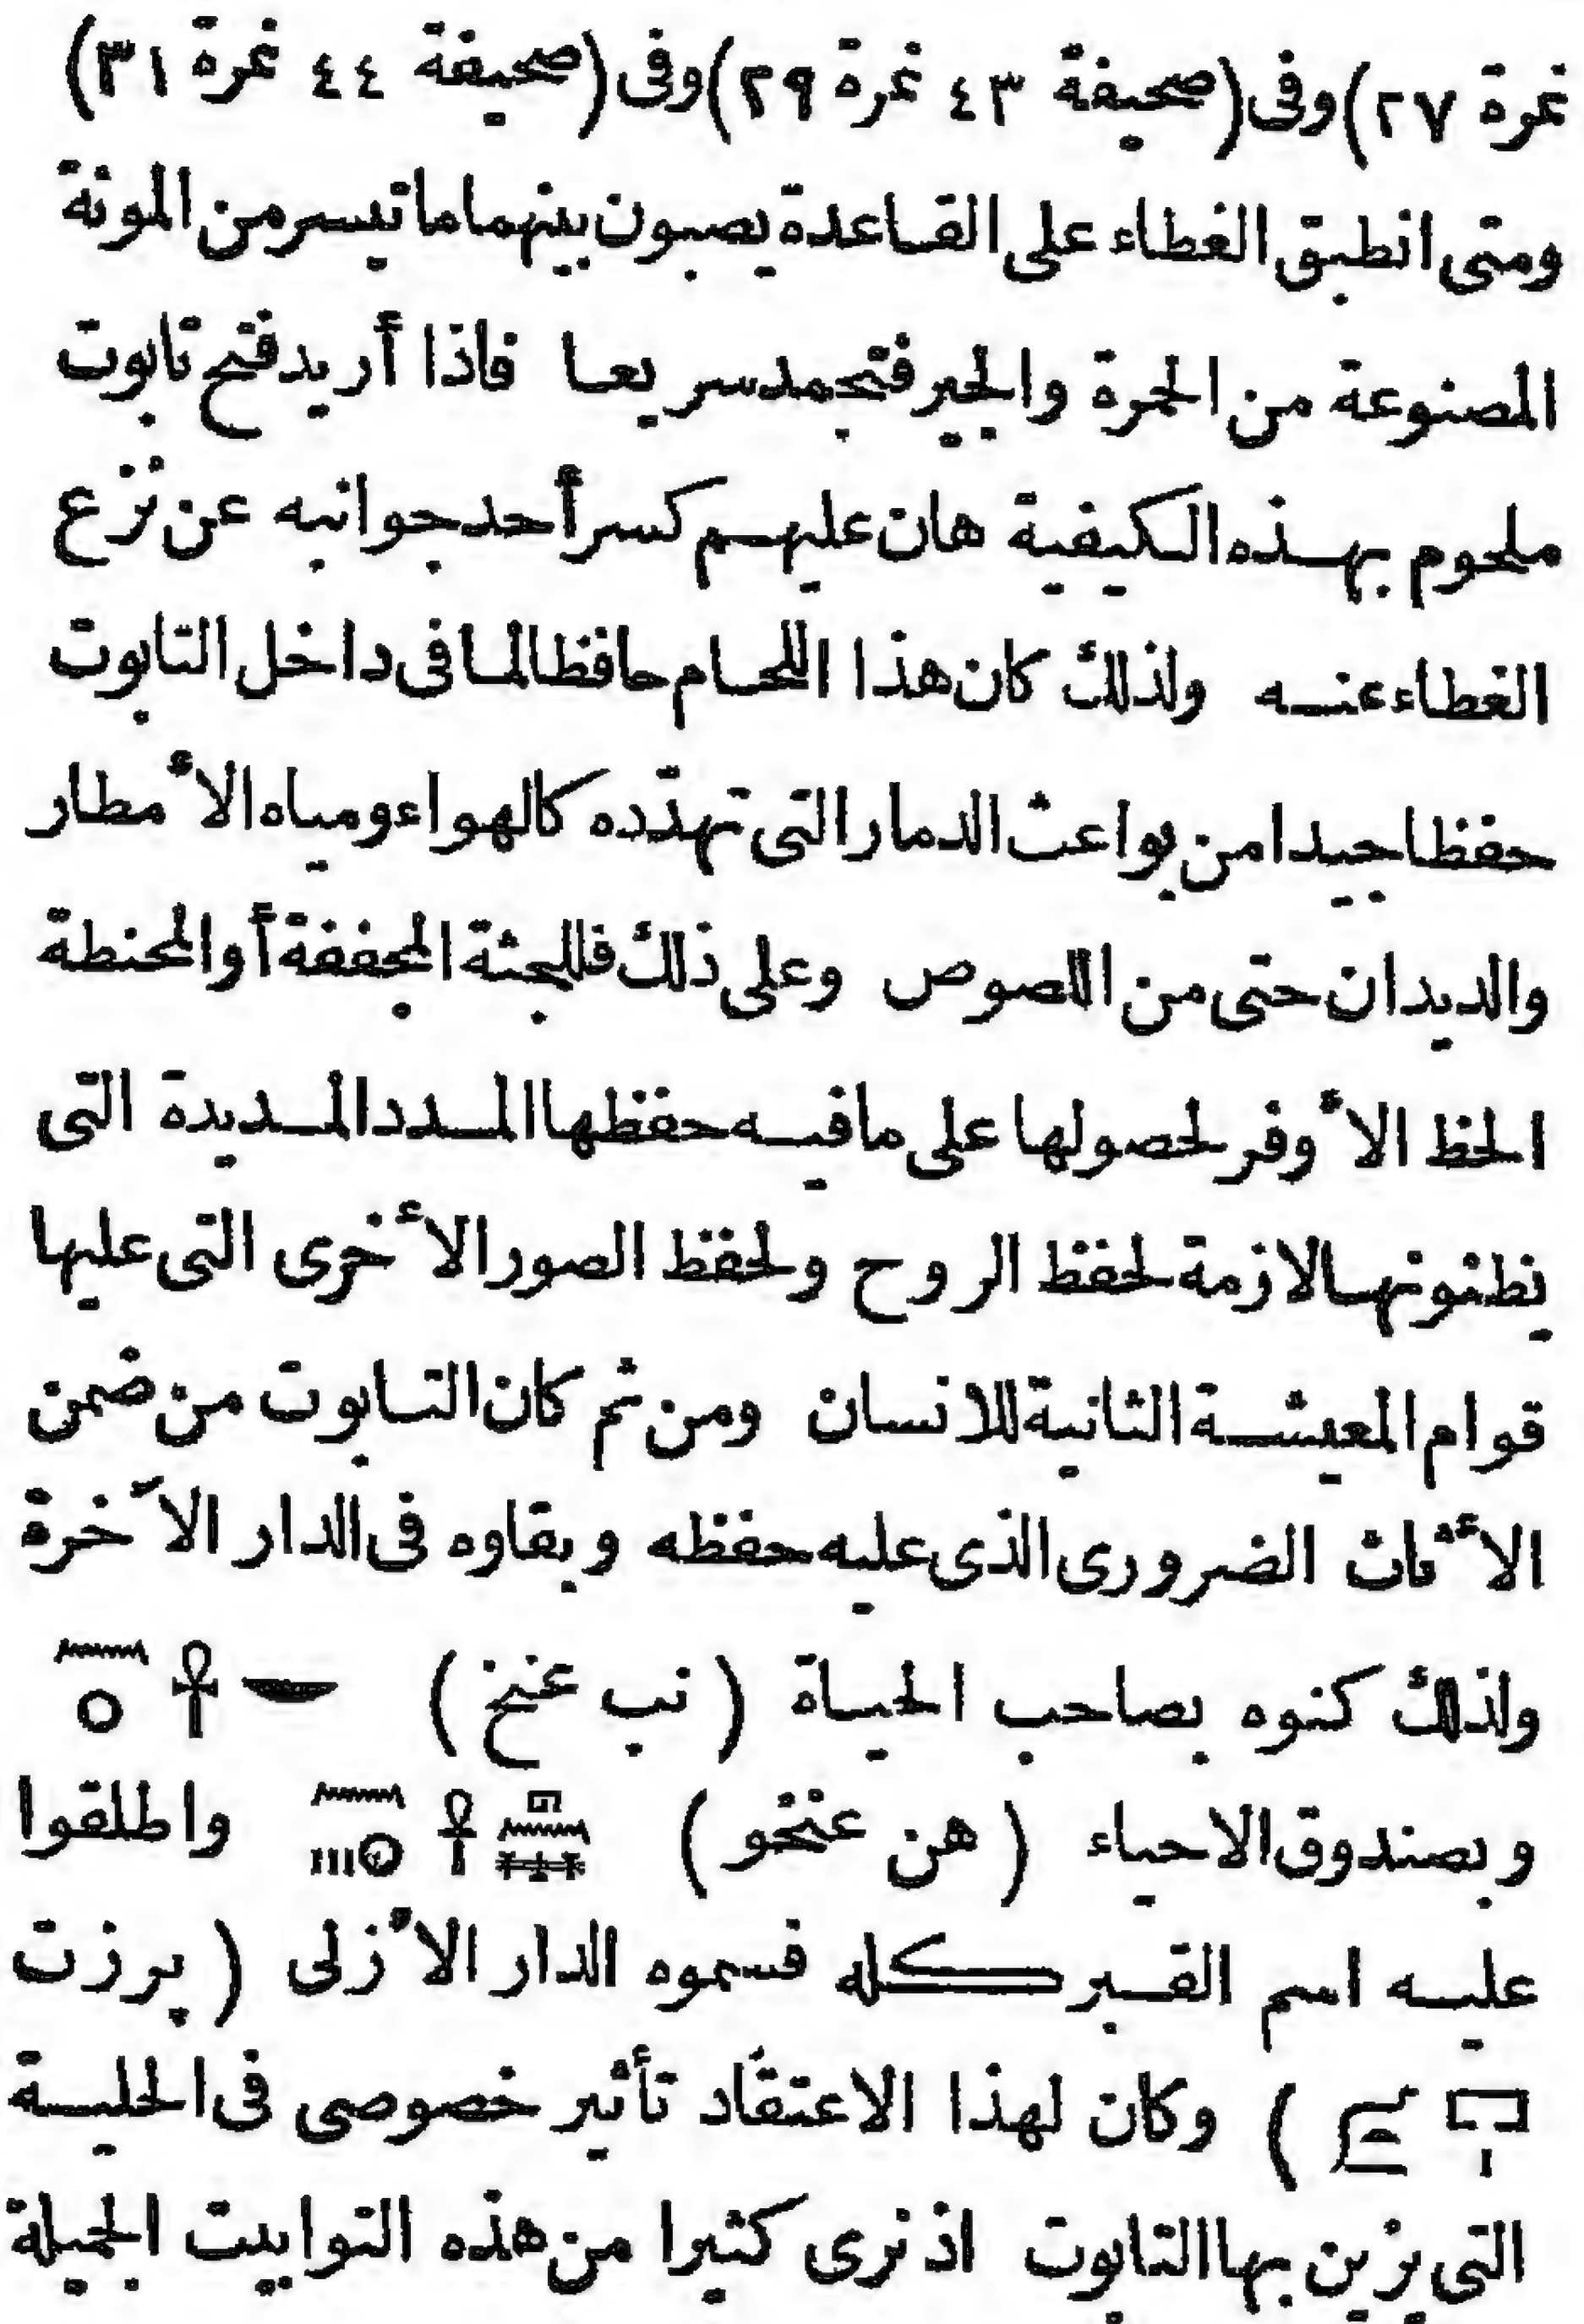 نمرة ٢٧) وفى (صحيفة ٤٣ نمرة ٢٩) وفى (صحيفة ٤٤ نمرة ٣١)
ومتى انطبق الغطاء على القاعدة يصبون بينهما ما تيسر من المونة
المصنوعة من الحمرة والجير فتجمد سريعا فاذا أريد فتح تابوت
ملحوم بهذه الكيفية هان عليهم كسر أحد جوانبه عن نزع
الغطاء عنه ولذلك كان هذا اللحام حافظا لما فى داخل التابوت
حفظا جيدا من بواعث الدمار التى تهدّده كالهواء ومياه الأمطار
والديدان حتى من اللصوص وعلى ذلك فللجثة المجففة أو المحنطة
الحظ الأوفر لحصولها على ما فيه حفظها المدد المديدة التى
يظنونها لازمة لحفظ الروح ولحفظ الصور الأخرى التى عليها
قوام المعيشة الثانية للانسان ومن ثم كان التابوت من ضمن
الأثاث الضرورى الذى عليه حفظه وبقاوه فى الدار الآخرة
ولذلك كنوه بصاحب الحياة (نب عنخ) 𓎟 𓋹 𓈖 𓐍
وبصندوق الاحياء (هن عنخو) 𓋹 𓈖 𓐍 واطلقوا
عليه اسم القبر كله فسموه الدار الأزلى (پر زت
𓉐 𓏤 𓆓 𓏏 𓇿) وكان لهذا الاعتقاد تأثير خصوصى فى الحلية
التى يزين بها التابوت اذ نرى كثيرا من هذه التوابيت الجميلة